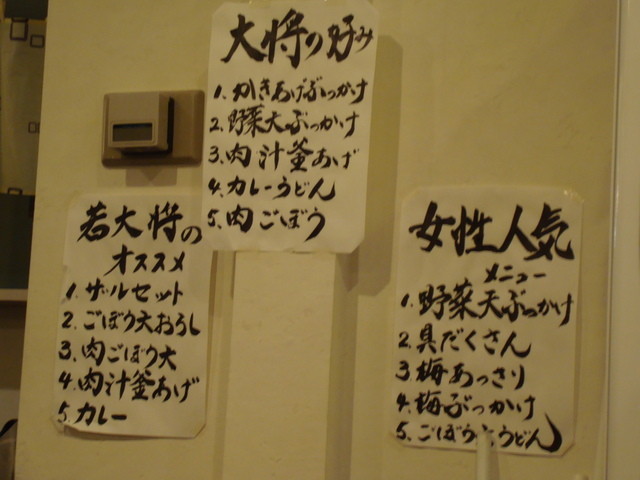 大将の好み
1. かきあげぶっかけ
2. 野菜天ぶっかけ
3. 肉汁釜あげ
4. カレーうどん
5. 肉ごぼう
若大将の
オススメ
1. ザルセット
2. ごぼう天おろし
3. 肉ごぼう天
4. 肉汁釜あげ
5. カレー
女性人気
メニュー
1. 野菜天ぶっかけ
2. 具だくさん
3 梅あっさり
4. 梅ぶっかけ
5. ごぼう天うどん